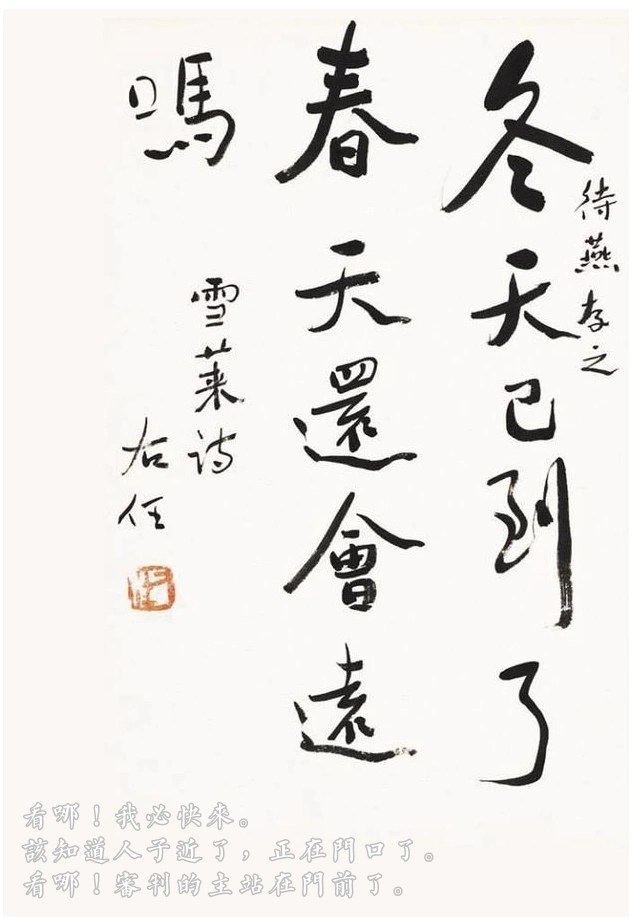 待燕存之
冬天已到了
春天還會遠
嗎
雪萊詩
右任
看哪！我必快來。
該知道人子近了，正在門口了。
看哪！審判的主站在門前了。